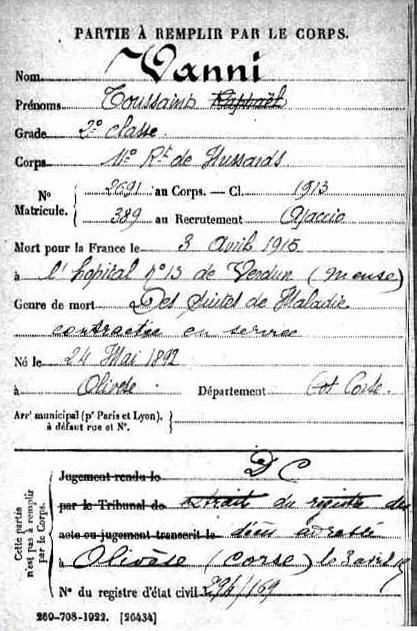 PARTIE À REMPLIR PAR LE CORPS.
Nom Vanni
Prénoms Toussaint Raphaël
Grade 2e classe
Corps 11e Rt de Hussards
No Matricule. 2691 au Corps. — Cl. 1913
389 au Recrutement Ajaccio
Mort pour la France le 3 Avril 1915
à l'hopital no 13 de Verdun (Meuse)
Genre de mort Des suites de Maladie
contractée en service
Né le 24 Mai 1892
à Olivèse Département Corse
Arrt municipal (pr Paris et Lyon), à défaut rue et No.
Cette partie n'est pas à remplir par le Corps.
Jugement rendu le D C
par le Tribunal de extrait du registre des
acte ou jugement transcrit le décès adressé
à Olivèse (Corse) le 3 avril
No du registre d'état civil 294/169
260-708-1922. [26434]